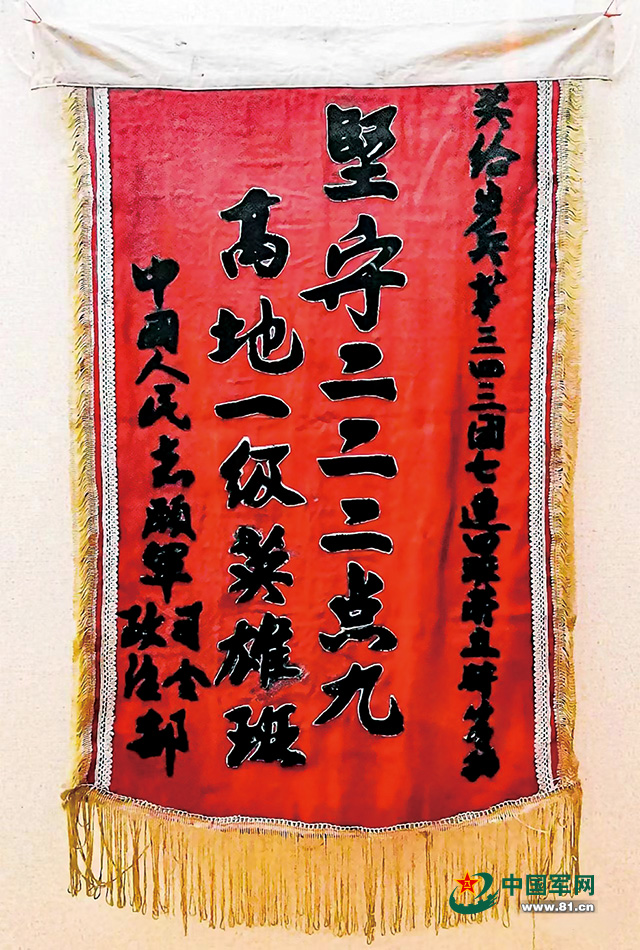 奖给步兵第三四三团七连四班荣立
坚守二二二点九
高地一级英雄班
中国人民志愿军司令政治部
中国军网
www.81.cn